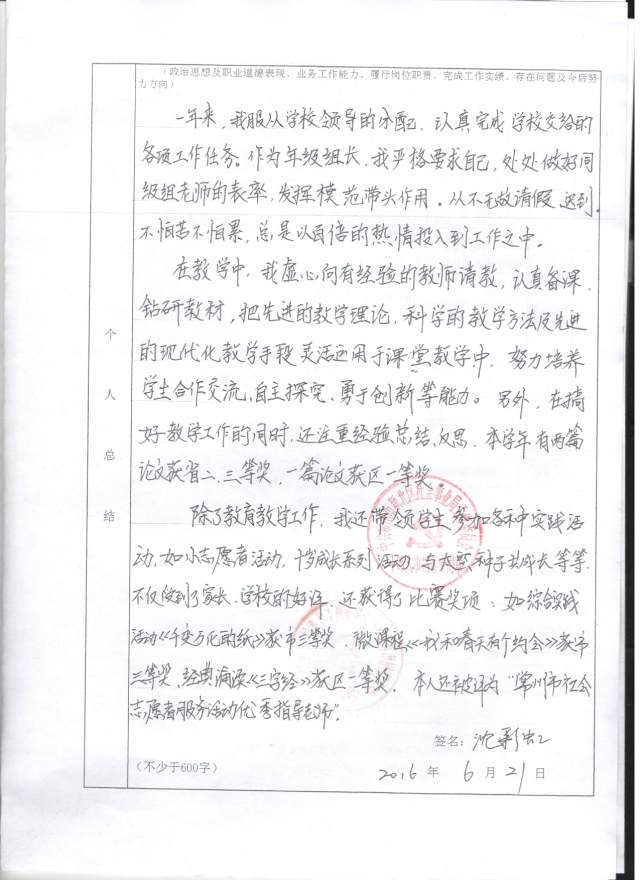 （政治思想及职业道德表现、业务工作能力、履行岗位职责、完成工作实绩、存在问题及今后努
力方向）
一年来，我服从学校领导的分配，认真完成学校交给的
各项工作任务。作为年级组长，我严格要求自己，处处做好同
级组老师的表率，发挥模范带头作用。从不无故请假、迟到。
不怕苦不怕累，总是以百倍的热情投入到工作之中。
在教学中，我虚心向有经验的教师请教，认真备课，
钻研教材，把先进的教学理论，科学的教学方法及先进
的现代化教学手段灵活运用于课堂教学中，努力培养
学生合作交流，自主探究，勇于创新等能力。另外，在搞
好教学工作的同时，还注重经验总结、反思，本学年有两篇
论文获省二、三等奖，一篇论文获区一等奖。
除了教育教学工作，我还带领学生参加各种实践活
动，如小志愿者活动，十岁成长系列活动，与太空种子共成长等等，
不仅受到了家长、学校的好评，还获得了比赛奖项：如综合实践
活动《千变万化的纸》获市三等奖，微课程《我和春天有个约会》获市
三等奖，经典诵读《三字经》获区一等奖，本人还被评为“常州市社会
志愿者服务活动优秀指导老师”。
个人总结
签名：沈彩虹
（不少于600字）
2016 年 6 月 21 日